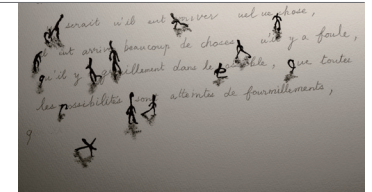 serait u'il eut arriver uel ue chose,
l eut arriver beaucoup de choses, u'il y a foule,
qu'il y fourmillement dans le possible, que toutes
les possibilités sont atteintes de fourmillements,
9